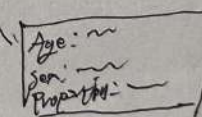 Age:
Sex:
Properties: